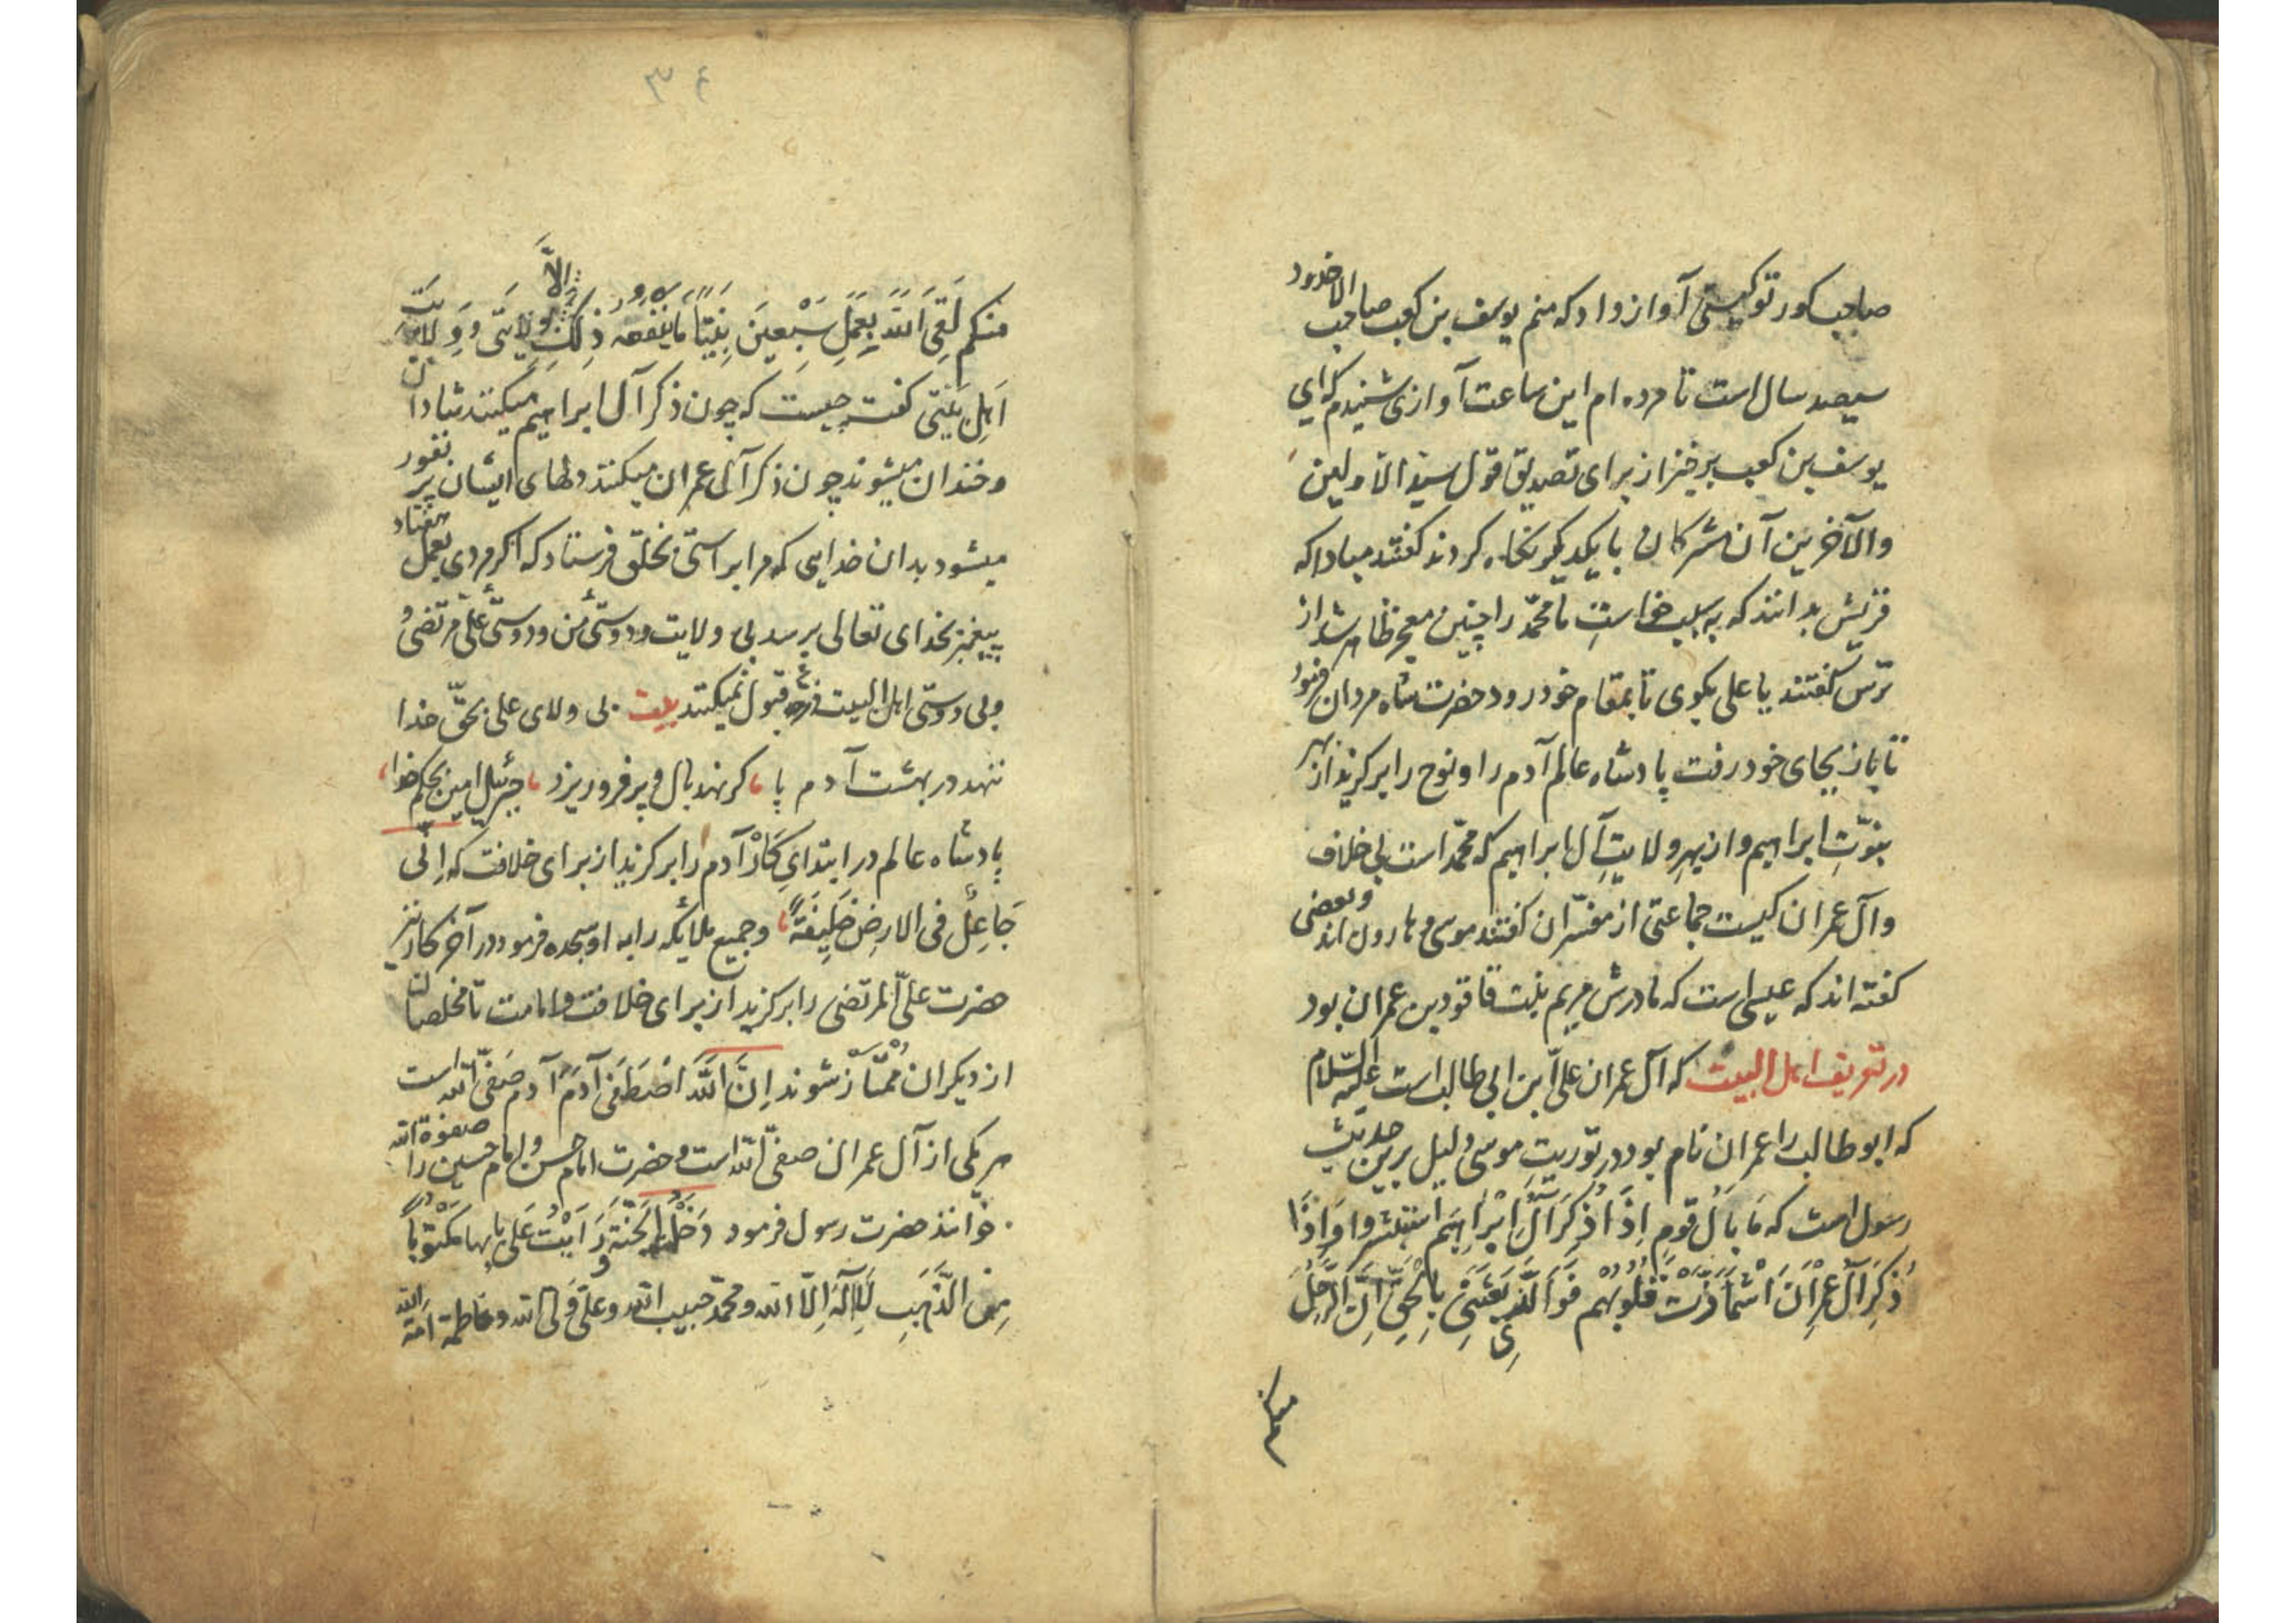 صاحب کور تو کیستی آواز داد که منم یوسف بن کعب صاحب الاخدود
سیصد سال است تا مرده ام این ساعت آوازی شنیدم که ای
یوسف بن کعب برخیز از برای تصدیق قول سید الاولین
والآخرین آن مشرکان با یکدیگر نگاه کردند گفتند مبادا که
قریش بدانند که به سبب خواست ما محمّد را چنین معجز ظاهر شد از
ترس گفتند یا علی بگوی تا بمقام خود رود حضرت شاه مردان فرمود
تا باز بجای خود رفت پادشاه عالم آدم را و نوح را برکزید از بهر
نبوّتِ ابراهیم و از بهر ولایتِ آل ابراهیم که محمّد است بی خلاف
و آل عمران کیست جماعتی از مفسّران گفتند موسی و هارون اند و بعضی
کفته اند که عیسی است که مادرش مریم بنت قاقود بن عمران بود
در تعریف اهل البیت که آل عمران علیّ ابن ابی طالب است علیه السّلام
که ابو طالب را عمران نام بود در توریت موسی دلیل برین حدیث
رسول است که مَا بَالُ قومٍ اِذَا ذُکِرَ آلُ اِبْرَاهِیَم استبشروا وَاِذَا
ذُکِرَ آلُ عِمْرَانَ اشْمَأَزَّتْ قُلُوبُهُم فَوَالَّذِی بَعَثَنِی بِالْحَقِّ اِنَّ الرَّجُلَ
منکم
۳۴
منکم لَقِیَ اللهَ بِعَمَلِ سَبْعِینَ نَبِیّاً مَا یَنْفَعُه ذٰلِکَ اِلاَّ بولایَتی وَ وِلایَتِ
اَهِل بَیْتی گفت چیست که چون ذکر آل ابراهیم میکنند شادان
و خندان میشوند چون ذکر آل عمران میکنند دلهای ایشان پر نفور
میشود بدان خدایی که مرا براستی بخلق فرستاد که اکر مردی بعمل هفتاد
پیغمبر بخدای تعالی برسد بی ولایت و دوستئ من و دوستئ علی مرتضی
و بی دوستی اهل البیت قبول نمیکنند بیت بی ولای علی بحقّ خدا
ننهد در بهشت آدم پا کر نهد بال و پر فرو ریزد جبرئیل امین بحکم خدا
پادشاه عالم در ابتدایِ کار آدم را برکزید از برای خلافت که اِنّی
جَاعِلٌ فی الارضِ خَلِیفَةً و جمیع ملایکه را به او سجده فرمود در آخر کار نیز
حضرت علیّ المرتضی را برکزید از برای خلافت و امامت تا مخلصان
از دیکران مُمتاز شوند اِنَّ اللهَ اصْطَفَیٰ آدَمَ آدم صَفیّ الله است
هر یکی از آل عمران صفیّ الله است و حضرت امام حسن و امام حسین را صفوة الله
خوانند حضرت رسول فرمود دَخَلْتُ الجَنَّةَ وَ رَاَیْتُ عَلیٰ بابِها مَکْتُوباً
مِنَ الذَّهَبِ لَا اِلٰهَ اِلاّ الله و محمّد حبیب الله و علیّ ولیّ الله و فاطمة اَمَة الله